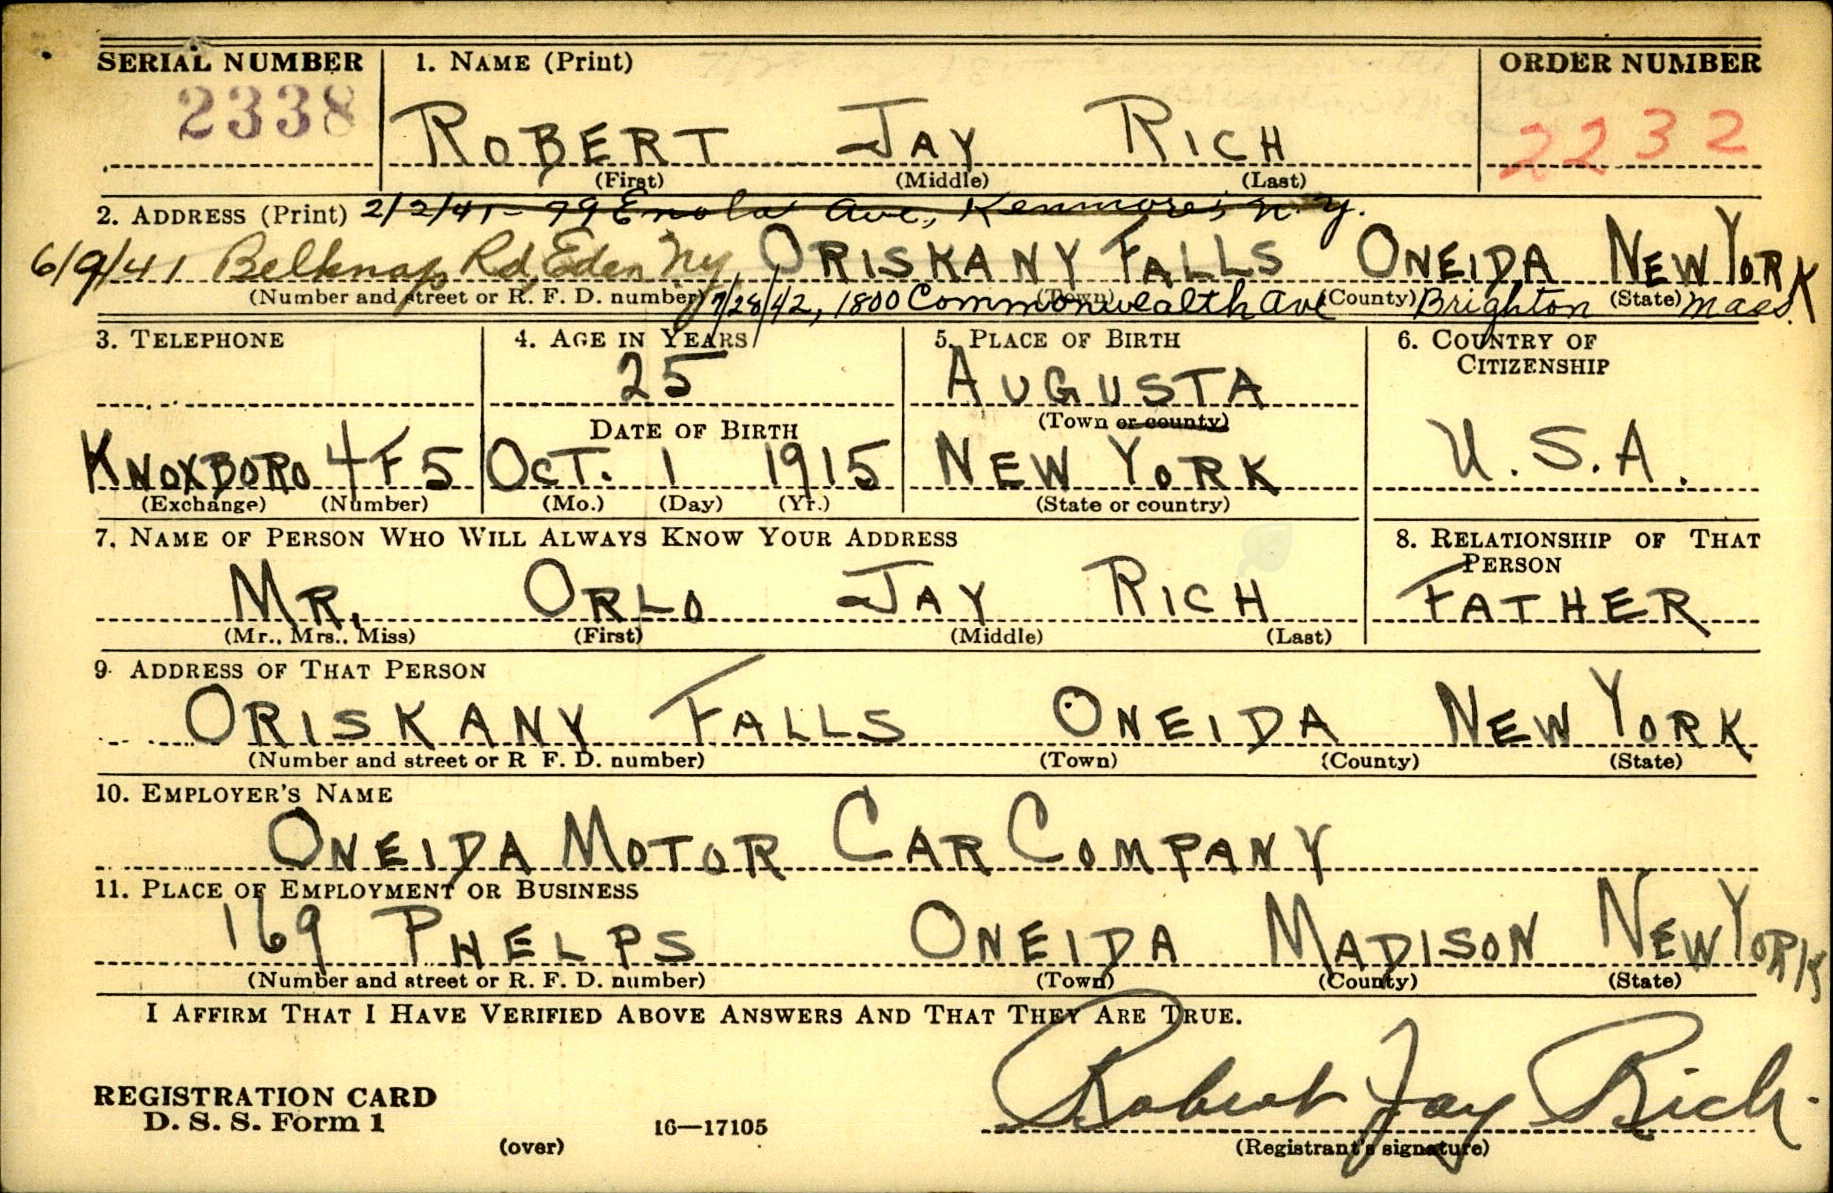 SERIAL NUMBER 1. NAME (Print) ORDER NUMBER
2338 ROBERT JAY RICH 2232
(First) (Middle) (Last)
2. ADDRESS (Print) 2/2/41 - 79 Enola Ave., Kenmore, N.Y.
6/9/41 Belknap Rd, Eden Ny ORISKANY FALLS ONEIDA NEW YORK
(Number and street or R. F. D. number) (Town) (County) (State)
7/28/42, 1800 Commonwealth Ave Brighton Mass.
3. TELEPHONE 4. AGE IN YEARS 5. PLACE OF BIRTH 6. COUNTRY OF
CITIZENSHIP
25 AUGUSTA
DATE OF BIRTH (Town or county)
KNOXBORO 4F5 OCT. 1 1915 NEW YORK U.S.A.
(Exchange) (Number) (Mo.) (Day) (Yr.) (State or country)
7. NAME OF PERSON WHO WILL ALWAYS KNOW YOUR ADDRESS 8. RELATIONSHIP OF THAT
PERSON
MR. ORLO JAY RICH FATHER
(Mr., Mrs., Miss) (First) (Middle) (Last)
9. ADDRESS OF THAT PERSON
ORISKANY FALLS ONEIDA NEW YORK
(Number and street or R. F. D. number) (Town) (County) (State)
10. EMPLOYER'S NAME
ONEIDA MOTOR CAR COMPANY
11. PLACE OF EMPLOYMENT OR BUSINESS
169 PHELPS ONEIDA MADISON NEW YORK
(Number and street or R. F. D. number) (Town) (County) (State)
I AFFIRM THAT I HAVE VERIFIED ABOVE ANSWERS AND THAT THEY ARE TRUE.
REGISTRATION CARD
D. S. S. Form 1 16—17105 Robert Jay Rich.
(over) (Registrant's signature)